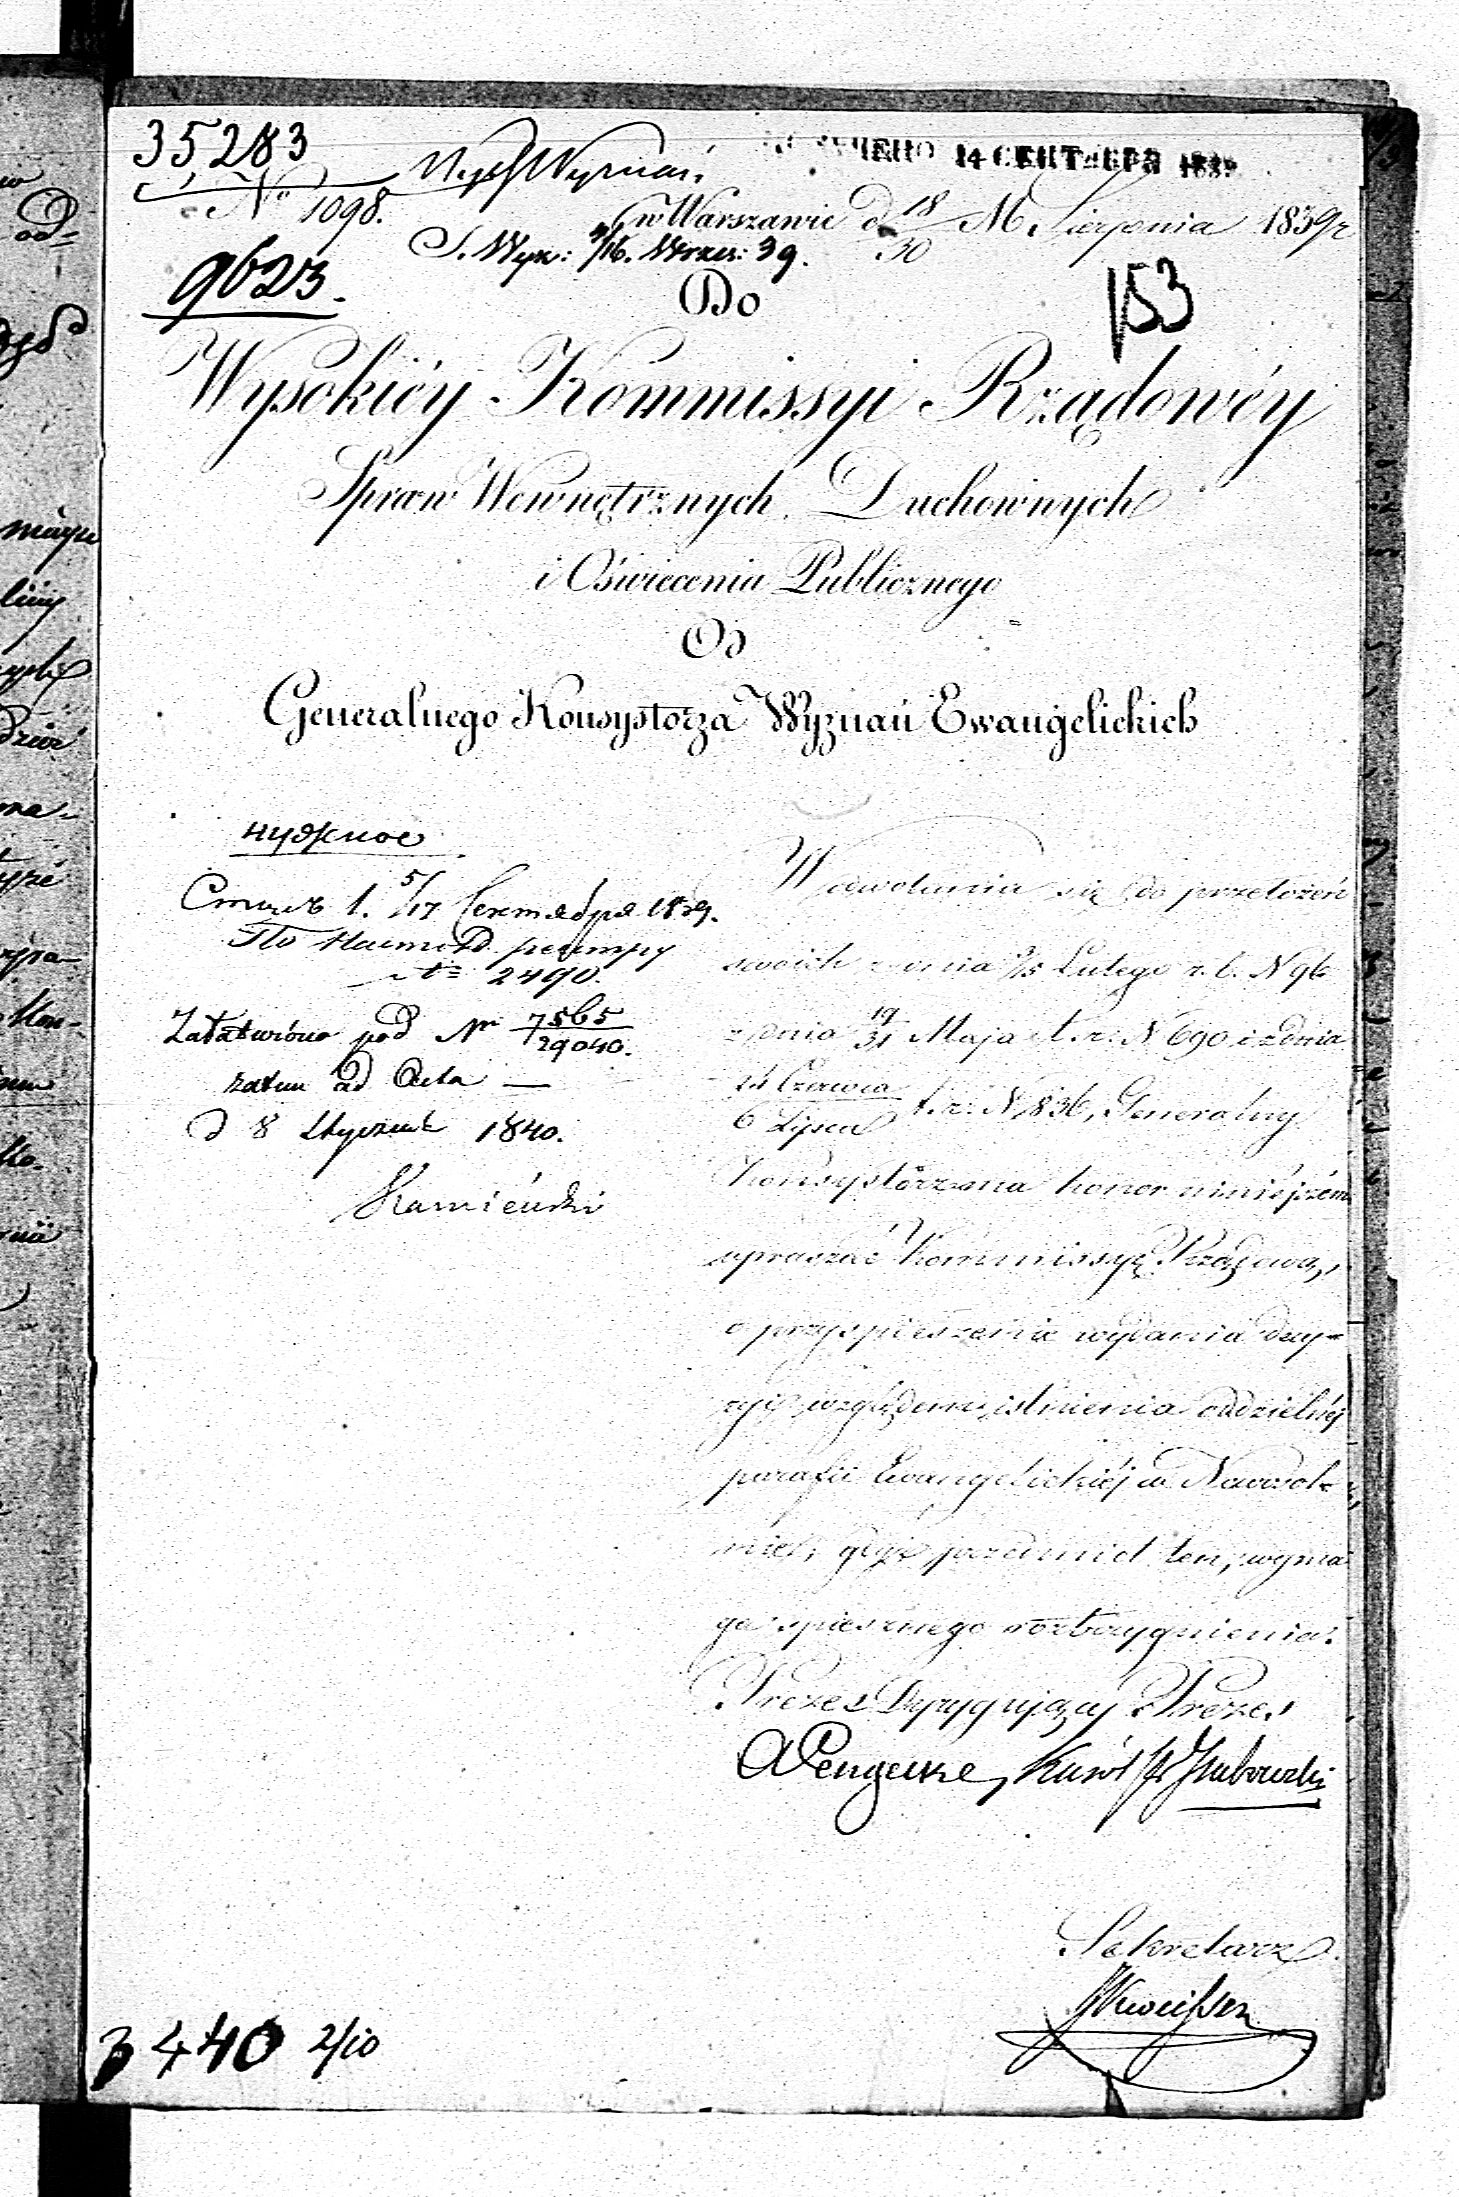 35283
No 1098.
9623.
14 СЕНТЯБРЯ 1839
w Warszawie d 18/30 M Sierpnia 1839 r
S. Wyz: 4/16. Wrześ: 39.
153
Do
Wysokiéy Kommissyi Rządowéy
Spraw Wewnętrznych Duchownych
i Oświecenia Publicznego
Od
Generalnego Konsystorza Wyznań Ewangelickich
нужное
1. 5/17 Сентября 1839.
По Настол. реэстру
№ 2490.
Załatwiono pod Nr 7565/29040.
zatem ad Acta —
d 8 Stycznia 1840.
Kamiéński
W odwołaniu się do przełożeń
swoich z dnia 3/15 Lutego r. b. N 96
z dnia 19/31 Maja t. r: N 690 i z dnia
24 Czerwca/6 Lipca t. r: N 836, Generalny
Konsystorz ma honor niniéjszém
upraszać Kommissyę Rządową,
o przyspieszenie wydania decy=
zyi względem istnienia oddzielnéj
parafii Ewangelickiéj w Nawrol=
nicy, gdyż przedmiot ten, wyma
ga spiesznego rozstrzygnienia.
Prezes Dyrygujący Prezes
Karol
Sekretarz
3440 2/10